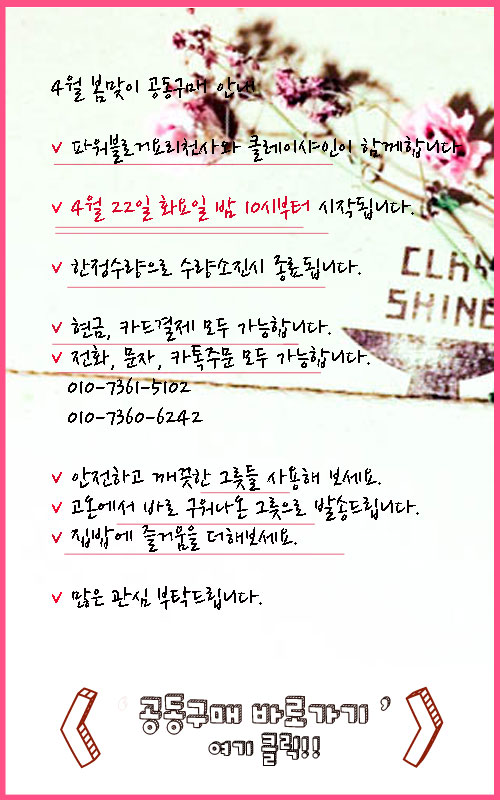 4월 봄맞이 공동구매 안내
v 파워블로거요리천사와 클레이샤인이 함께합니다.
v 4월 22일 화요일 밤 10시부터 시작됩니다.
v 한정수량으로 수량소진시 종료됩니다.
CLAY
SHINE
v 현금, 카드결제 모두 가능합니다.
v 전화, 문자, 카톡주문 모두 가능합니다.
010-7361-5102
010-7360-6242
v 안전하고 깨끗한 그릇들 사용해 보세요.
v 고온에서 바로 구워나온 그릇으로 발송드립니다.
v 집밥에 즐거움을 더해보세요.
v 많은 관심 부탁드립니다.
‘ 공동구매 바로가기 ’
여기 클릭!!